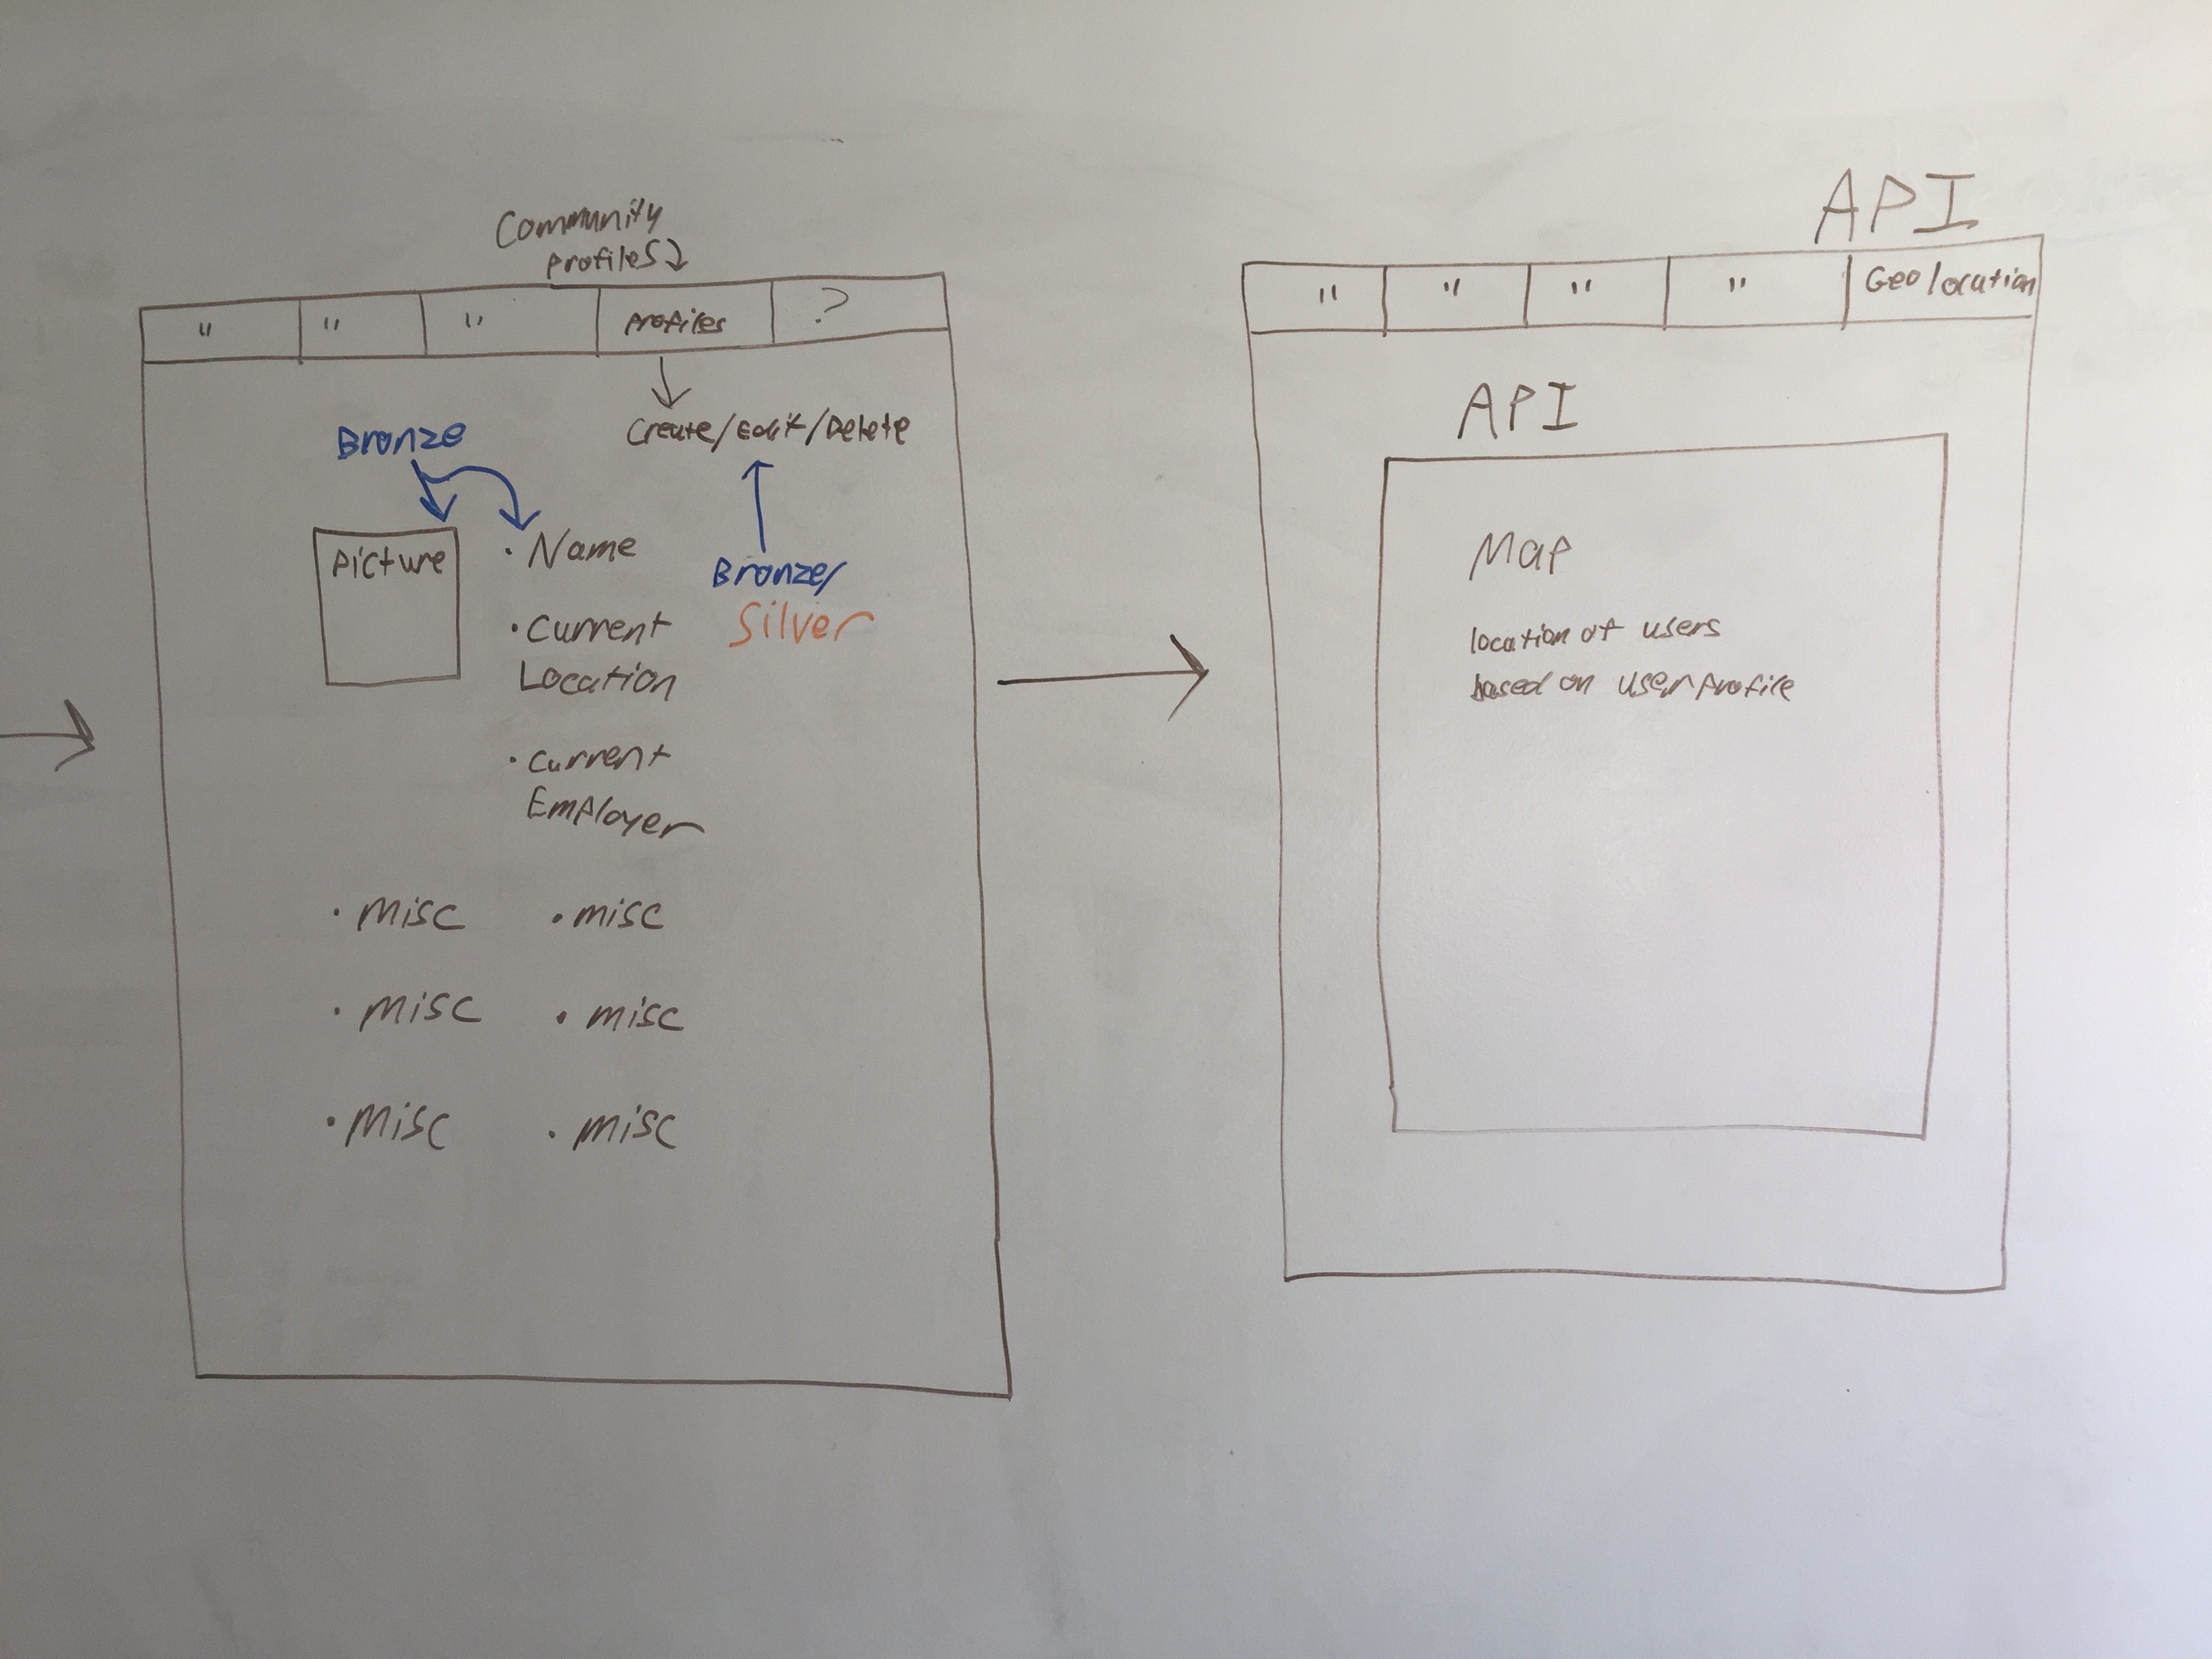 Community
Profiles
" " " Profiles ?
Create/Edit/Delete
Bronze
Picture
· Name
Bronze/
Silver
· Current
Location
· Current
Employer
· misc · misc
· misc · misc
· misc · misc
API
" " " " Geolocation
API
Map
location of users
based on user profile